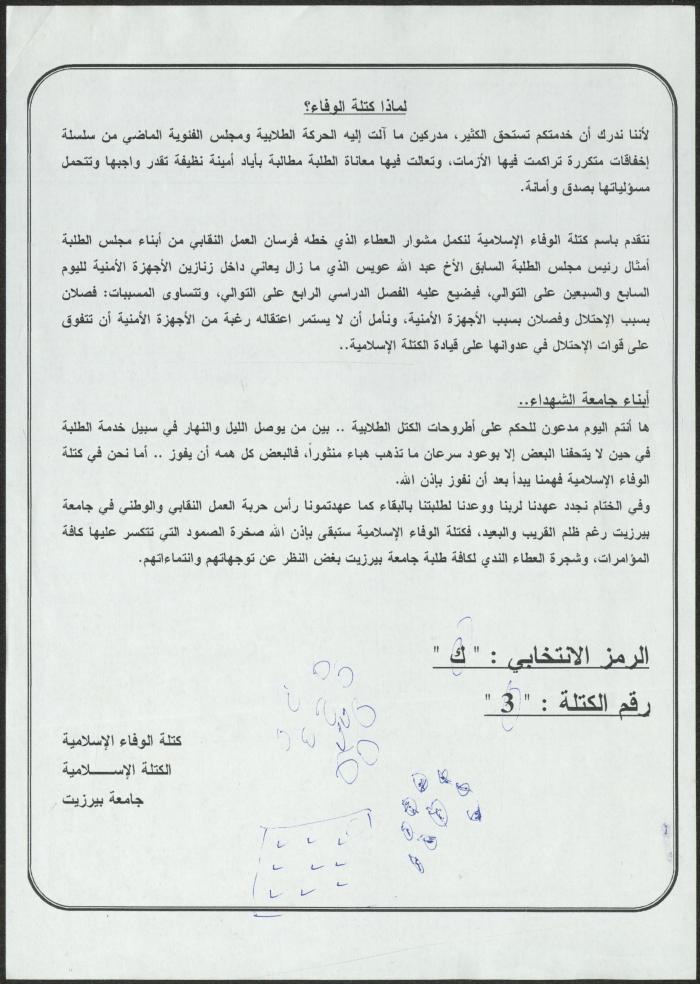 لماذا كتلة الوفاء؟
لأننا ندرك أن خدمتكم تستحق الكثير، مدركين ما آلت إليه الحركة الطلابية ومجلس الفئوية الماضي من سلسلة
إخفاقات متكررة تراكمت فيها الأزمات، وتعالت فيها معاناة الطلبة مطالبة بأياد أمينة نظيفة تقدر واجبها وتتحمل
مسؤلياتها بصدق وأمانة.
نتقدم باسم كتلة الوفاء الإسلامية لنكمل مشوار العطاء الذي خطه فرسان العمل النقابي من أبناء مجلس الطلبة
أمثال رئيس مجلس الطلبة السابق الأخ عبد الله عويس الذي ما زال يعاني داخل زنازين الأجهزة الأمنية لليوم
السابع والسبعين على التوالي، فيضيع عليه الفصل الدراسي الرابع على التوالي، وتتساوى المسببات: فصلان
بسبب الإحتلال وفصلان بسبب الأجهزة الأمنية، ونأمل أن لا يستمر اعتقاله رغبة من الأجهزة الأمنية أن تتفوق
على قوات الإحتلال في عدوانها على قيادة الكتلة الإسلامية..
أبناء جامعة الشهداء..
ها أنتم اليوم مدعون للحكم على أطروحات الكتل الطلابية .. بين من يوصل الليل والنهار في سبيل خدمة الطلبة
في حين لا يتحفنا البعض إلا بوعود سرعان ما تذهب هباء منثوراً، فالبعض كل همه أن يفوز .. أما نحن في كتلة
الوفاء الإسلامية فهمنا يبدأ بعد أن نفوز بإذن الله.
وفي الختام نجدد عهدنا لربنا ووعدنا لطلبتنا بالبقاء كما عهدتمونا رأس حربة العمل النقابي والوطني في جامعة
بيرزيت رغم ظلم القريب والبعيد، فكتلة الوفاء الإسلامية ستبقى بإذن الله صخرة الصمود التي تتكسر عليها كافة
المؤامرات، وشجرة العطاء الندي لكافة طلبة جامعة بيرزيت بغض النظر عن توجهاتهم وانتماءاتهم.
الرمز الانتخابي : " ك "
رقم الكتلة : " 3 "
كتلة الوفاء الإسلامية
الكتلة الإســـــلامية
جامعة بيرزيت